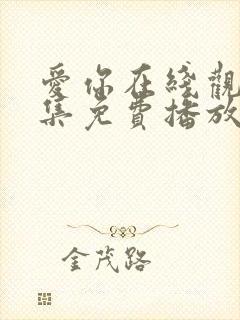 愛你在綫觀
集免費播放
金茂路